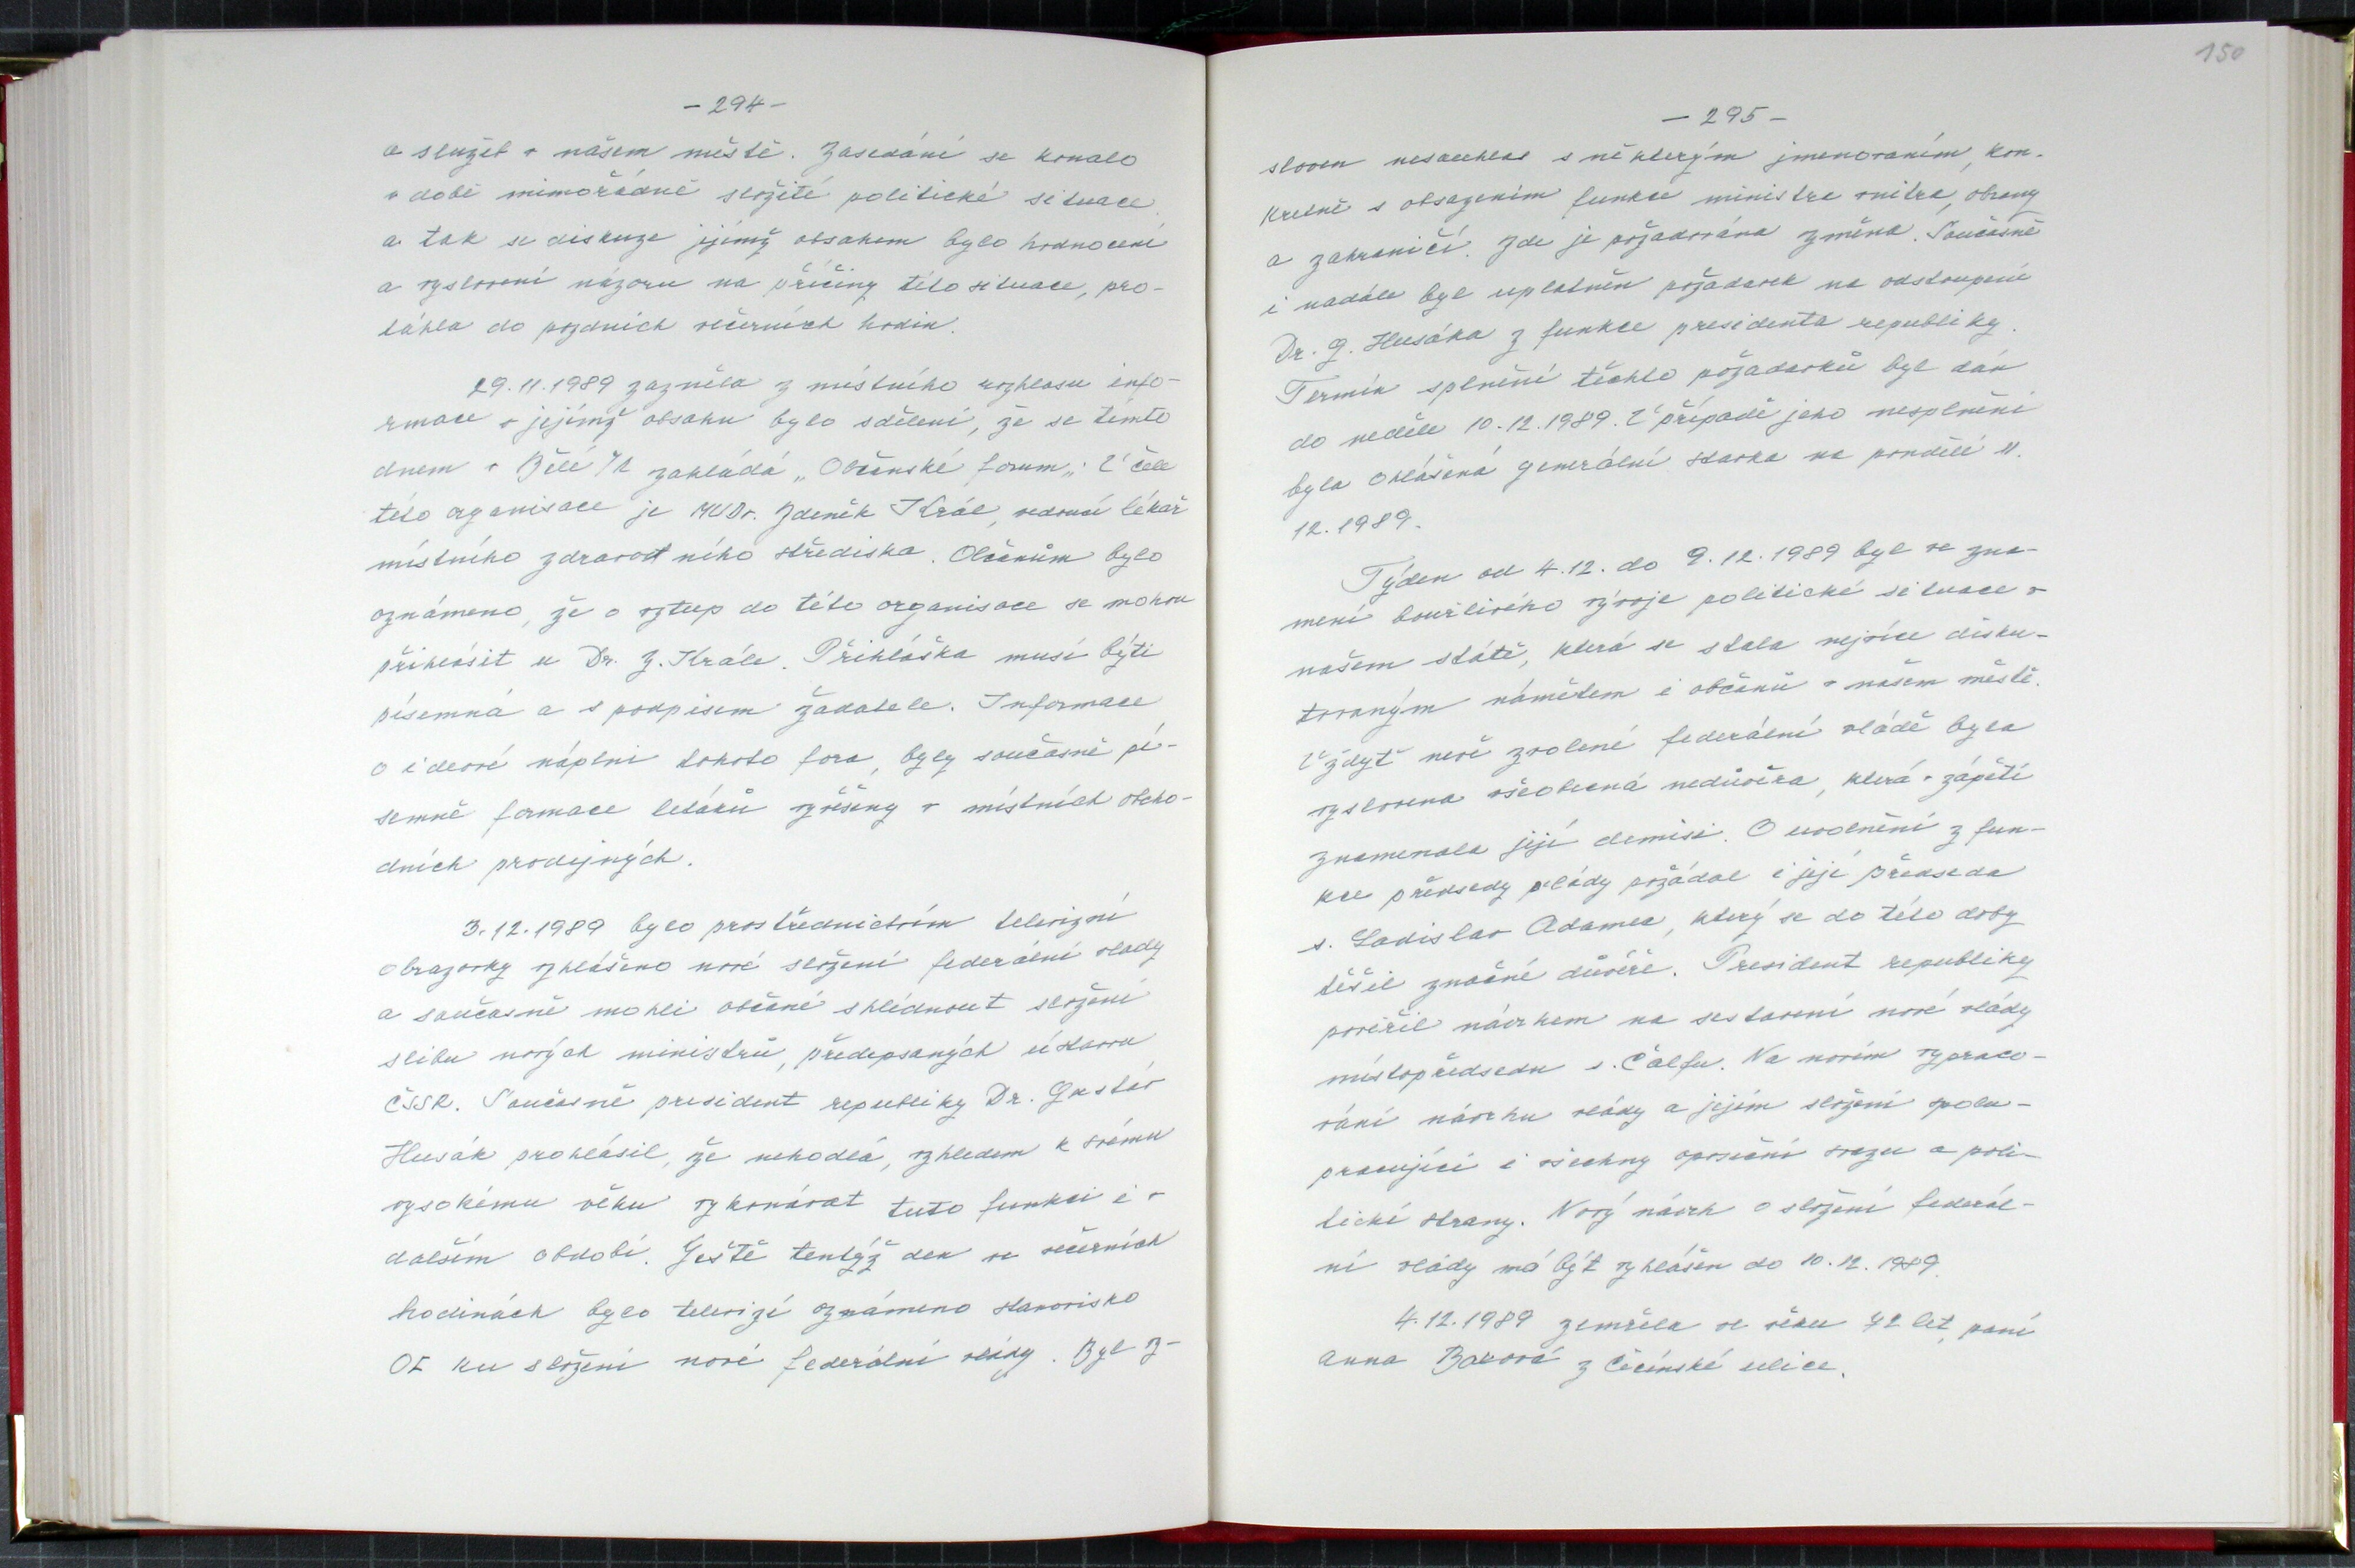 - 294 -
a služeb v našem městě. Zasedání se konalo
v době mimořádně složité politické situace
a tak se diskuze jejímž obsahem bylo hodnocení
a vyslovení názoru na příčiny této situace, pro-
táhla do pozdních večerních hodin.
29.11.1989 zazněla z místního rozhlasu info-
rmace v jejímž obsahu bylo sdělení, že se tímto
dnem v Bělé zakládá „Občanské forum„. V čele
této organisace je MUDr. Zdeněk Král, vedoucí lékař
místního zdravotního střediska. Občanům bylo
oznámeno, že o vztup do této organisace se mohou
přihlásit u Dr. Z. Krále. Přihláška musí býti
písemná a s podpisem žadatele. Informace
o ideové náplni tohoto fora, byly současně pí-
semně formace letáků vyvěšeny v místních obcho-
dních prodejných.
3.12.1989 bylo prostřednictvím televizní
obrazovky vyhlášeno nové složení federální vlady
a současně mohli občané shlédnout složení
slibu nových ministrů, předepsaných ústavou
ČSSR. Současně president republiky Dr. Gustáv
Husák prohlásil, že nehodlá, vzhledem k svému
vysokému věku vykonávat tuto funkci i v
dalším období. Ještě tentýž den ve večerních
hodinách bylo televizí oznámeno stanovisko
OF ku složení nové federální vlády. Byl z-
150
- 295 -
sloven nesouhlas s některým jmenováním, kon-
kretně s obsazením funkce ministra vnitra, obrany
a zahraničí. Zde je požadována změna. Současně
i nadále byl uplatněn požadavek na odstoupení
Dr. G. Husáka z funkce presidenta republiky.
Termín splnění těchto požadavků byl dán
do neděle 10.12.1989. V případě jeho nesplnění
byla ohlášená generální stavka na pondělí 11.
12.1989.
Týden od 4.12. do 9.12.1989 byl ve zna-
mení bouřlivého vývoje politické situace v
našem státě, která se stala nejvíce disku-
tovaným námětem i občanů v našem městě.
Vždyť nově zvolené federální vládě byla
vyslovena všeobecná nedůvěra, která v zápětí
znamenala její demisi. O uvolnění z fun-
kce předsedy vlády požádal i její předseda
s. Ladislav Adamec, který se do této doby
těšil značné důvěře. President republiky
pověřil návrhem na sestavení nové vlády
místopředsedu s. Čalfu. Na novém vypraco-
vání návrhu vlády a jejím složení spolu-
pracující i všechny oposiční svazu a poli-
tické strany. Nový návrh o složení federál-
ní vlády má být vyhlášen do 10.12.1989.
4.12.1989 zemřela ve věku 72 let, paní
Anna z ulice.